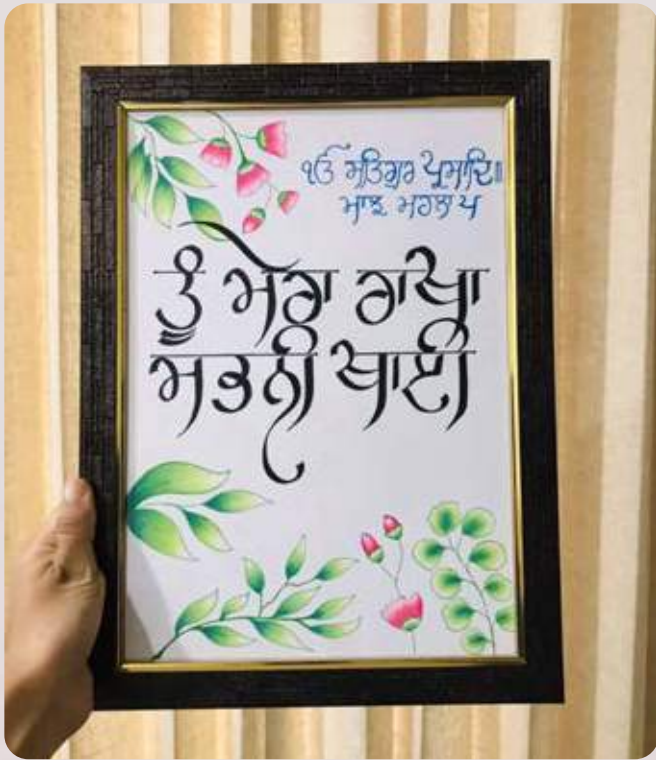 ੴ ਸਤਿਗੁਰ ਪ੍ਰਸਾਦਿ॥
ਮਾਝ ਮਹਲਾ ੫
ਤੂੰ ਮੇਰਾ ਰਾਖਾ
ਸਭਨੀ ਥਾਈ